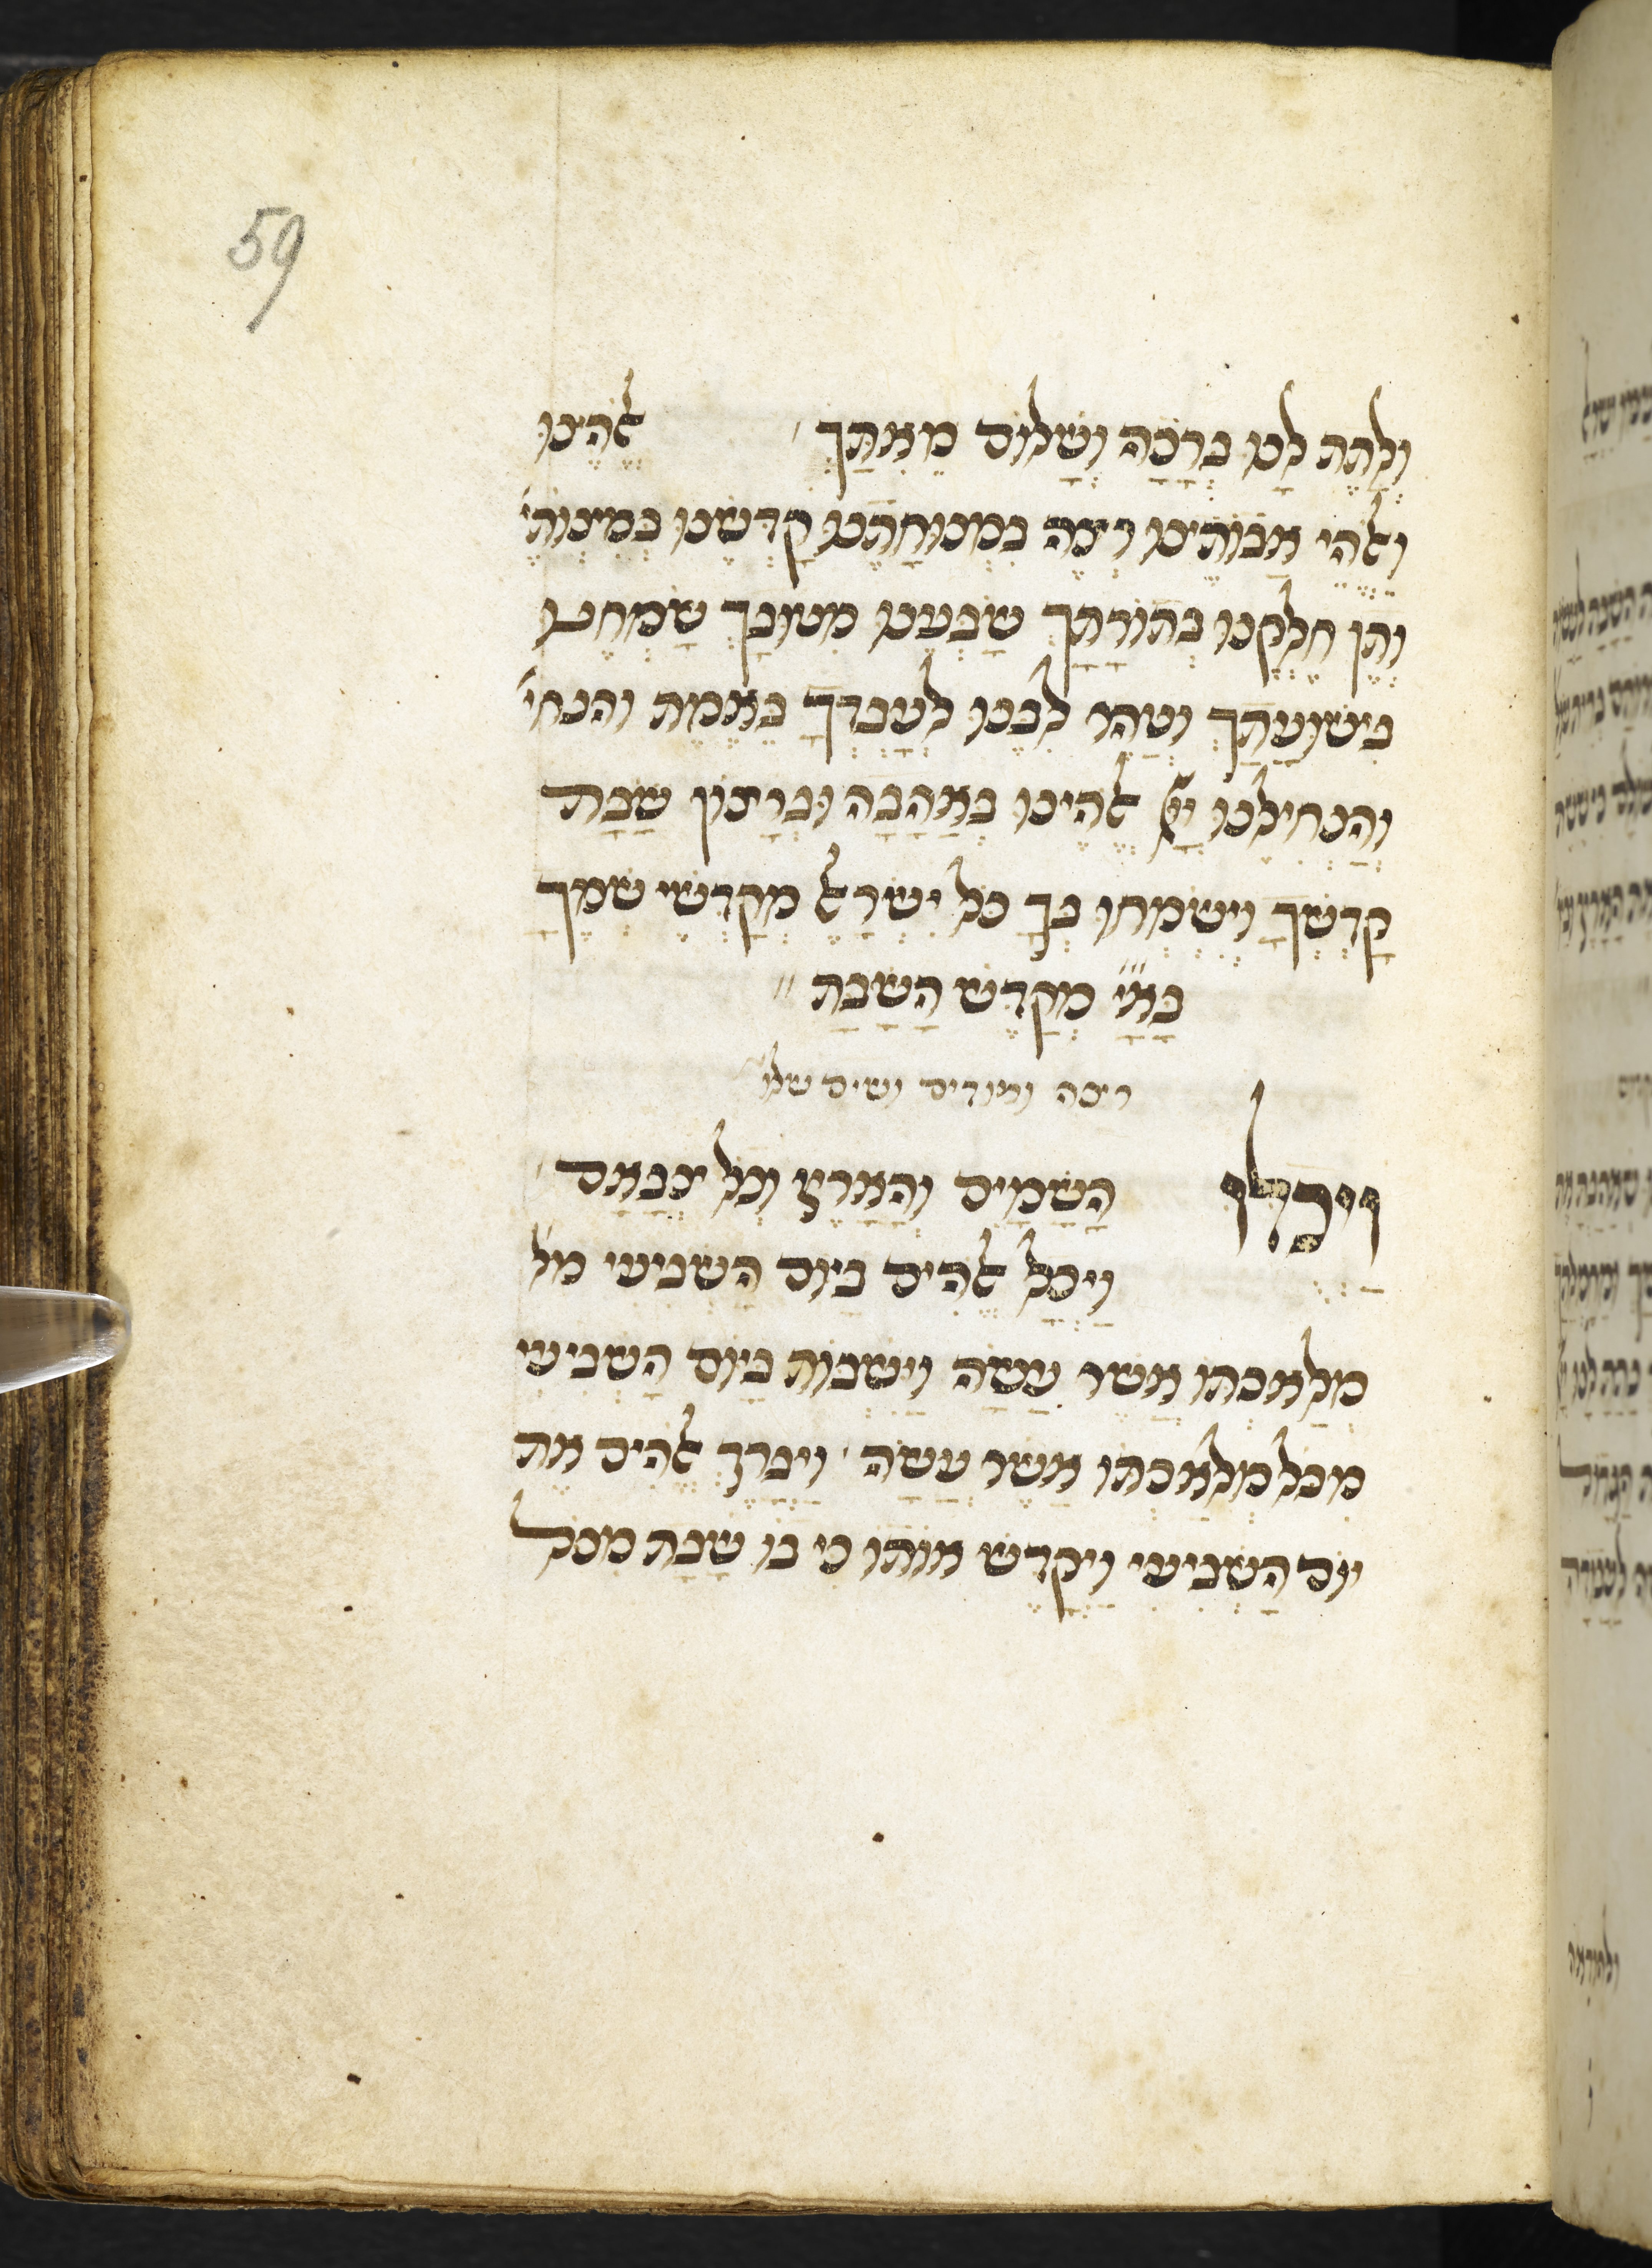 59
וְלָתֶת לָנוּ בְּרָכָה וְשָׁלוֹם מֵאִתָּךְ ׳ אֱלֹהֵינוּ
וֵאלֹהֵי אֲבוֹתֵינוּ רְצֵה בִמְנוּחָתֵנוּ קַדְּשֵׁנוּ בְּמִצְוֹתֶי׳
וְתֵן חֶלְקֵנוּ בְּתוֹרָתָךְ שַׂבְּעֵנוּ מִטּוּבָךְ שַׂמְּחֵנוּ
בִּישׁוּעָתָךְ וְטַהֵר לִבֵּנוּ לְעָבְדְּךָ בֶּאֱמֶת והנחי׳
וְהַנְחִילֵנוּ יְיָ אֱלֹהֵינוּ בְּאַהֲבָה וּבְרָצוֹן שַׁבַּת
קָדְשְׁךָ וְיִשְׂמְחוּ בְךָ כָּל יִשְׂרָאֵל מְקַדְּשֵׁי שְׁמֶךָ
בָּאַ״יְ מְקַדֵּשׁ הַשַּׁבָּת ״
רצה ומודים ושים שלו׳
וַיְכֻלּוּ הַשָּׁמַיִם וְהָאָרֶץ וְכָל צְבָאָם ׳
וַיְכַל אֱלֹהִים בַּיּוֹם הַשְּׁבִיעִי מל׳
מְלַאכְתּוֹ אֲשֶׁר עָשָׂה וַיִּשְׁבּוֹת בַּיּוֹם הַשְּׁבִיעִי
מִכָּל מְלַאכְתּוֹ אֲשֶׁר עָשָׂה ׳ וַיְבָרֶךְ אֱלֹהִים אֶת
יוֹם הַשְּׁבִיעִי וַיְקַדֵּשׁ אוֹתוֹ כִּי בוֹ שָׁבַת מִכָּל